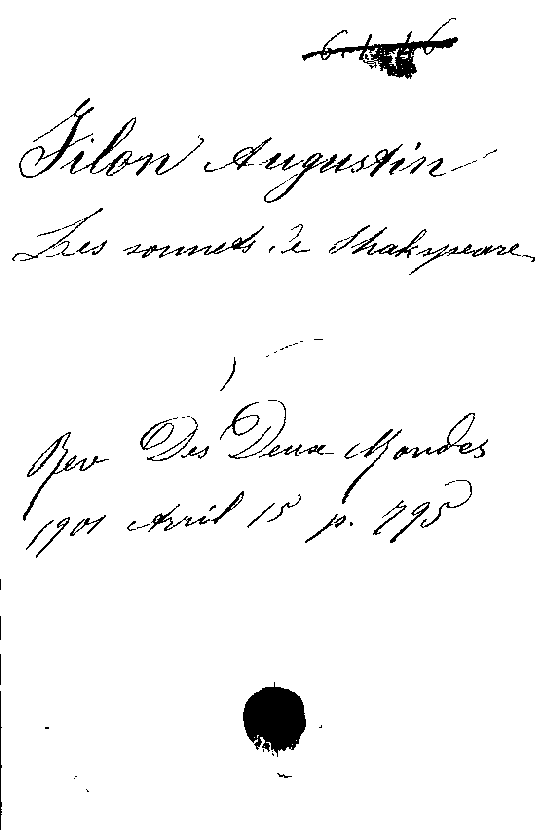 Filon Augustin
Les sonnets de Shakspeare
Rev Des Deux Mondes
1901 Avril 15 p. 795